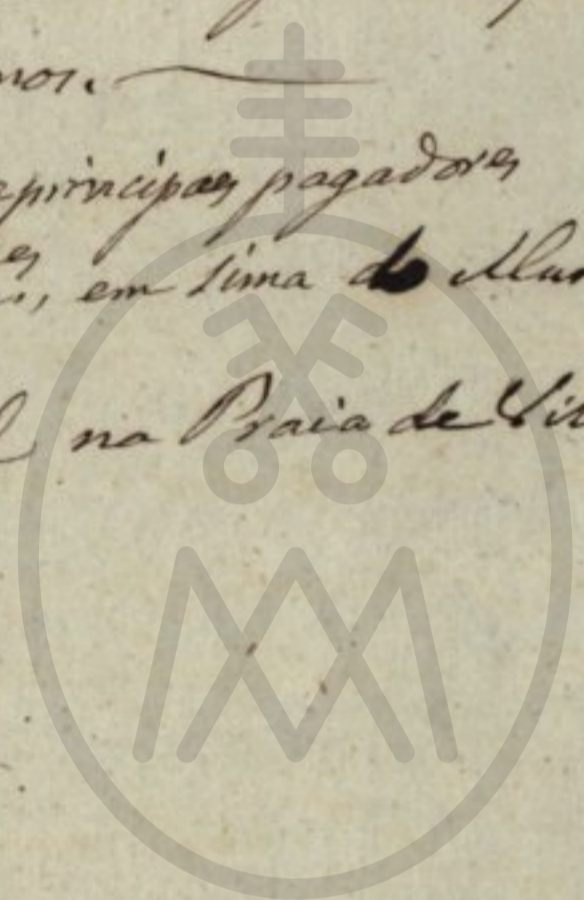 nos.
principaes pagadores
em sima do
na Praia de